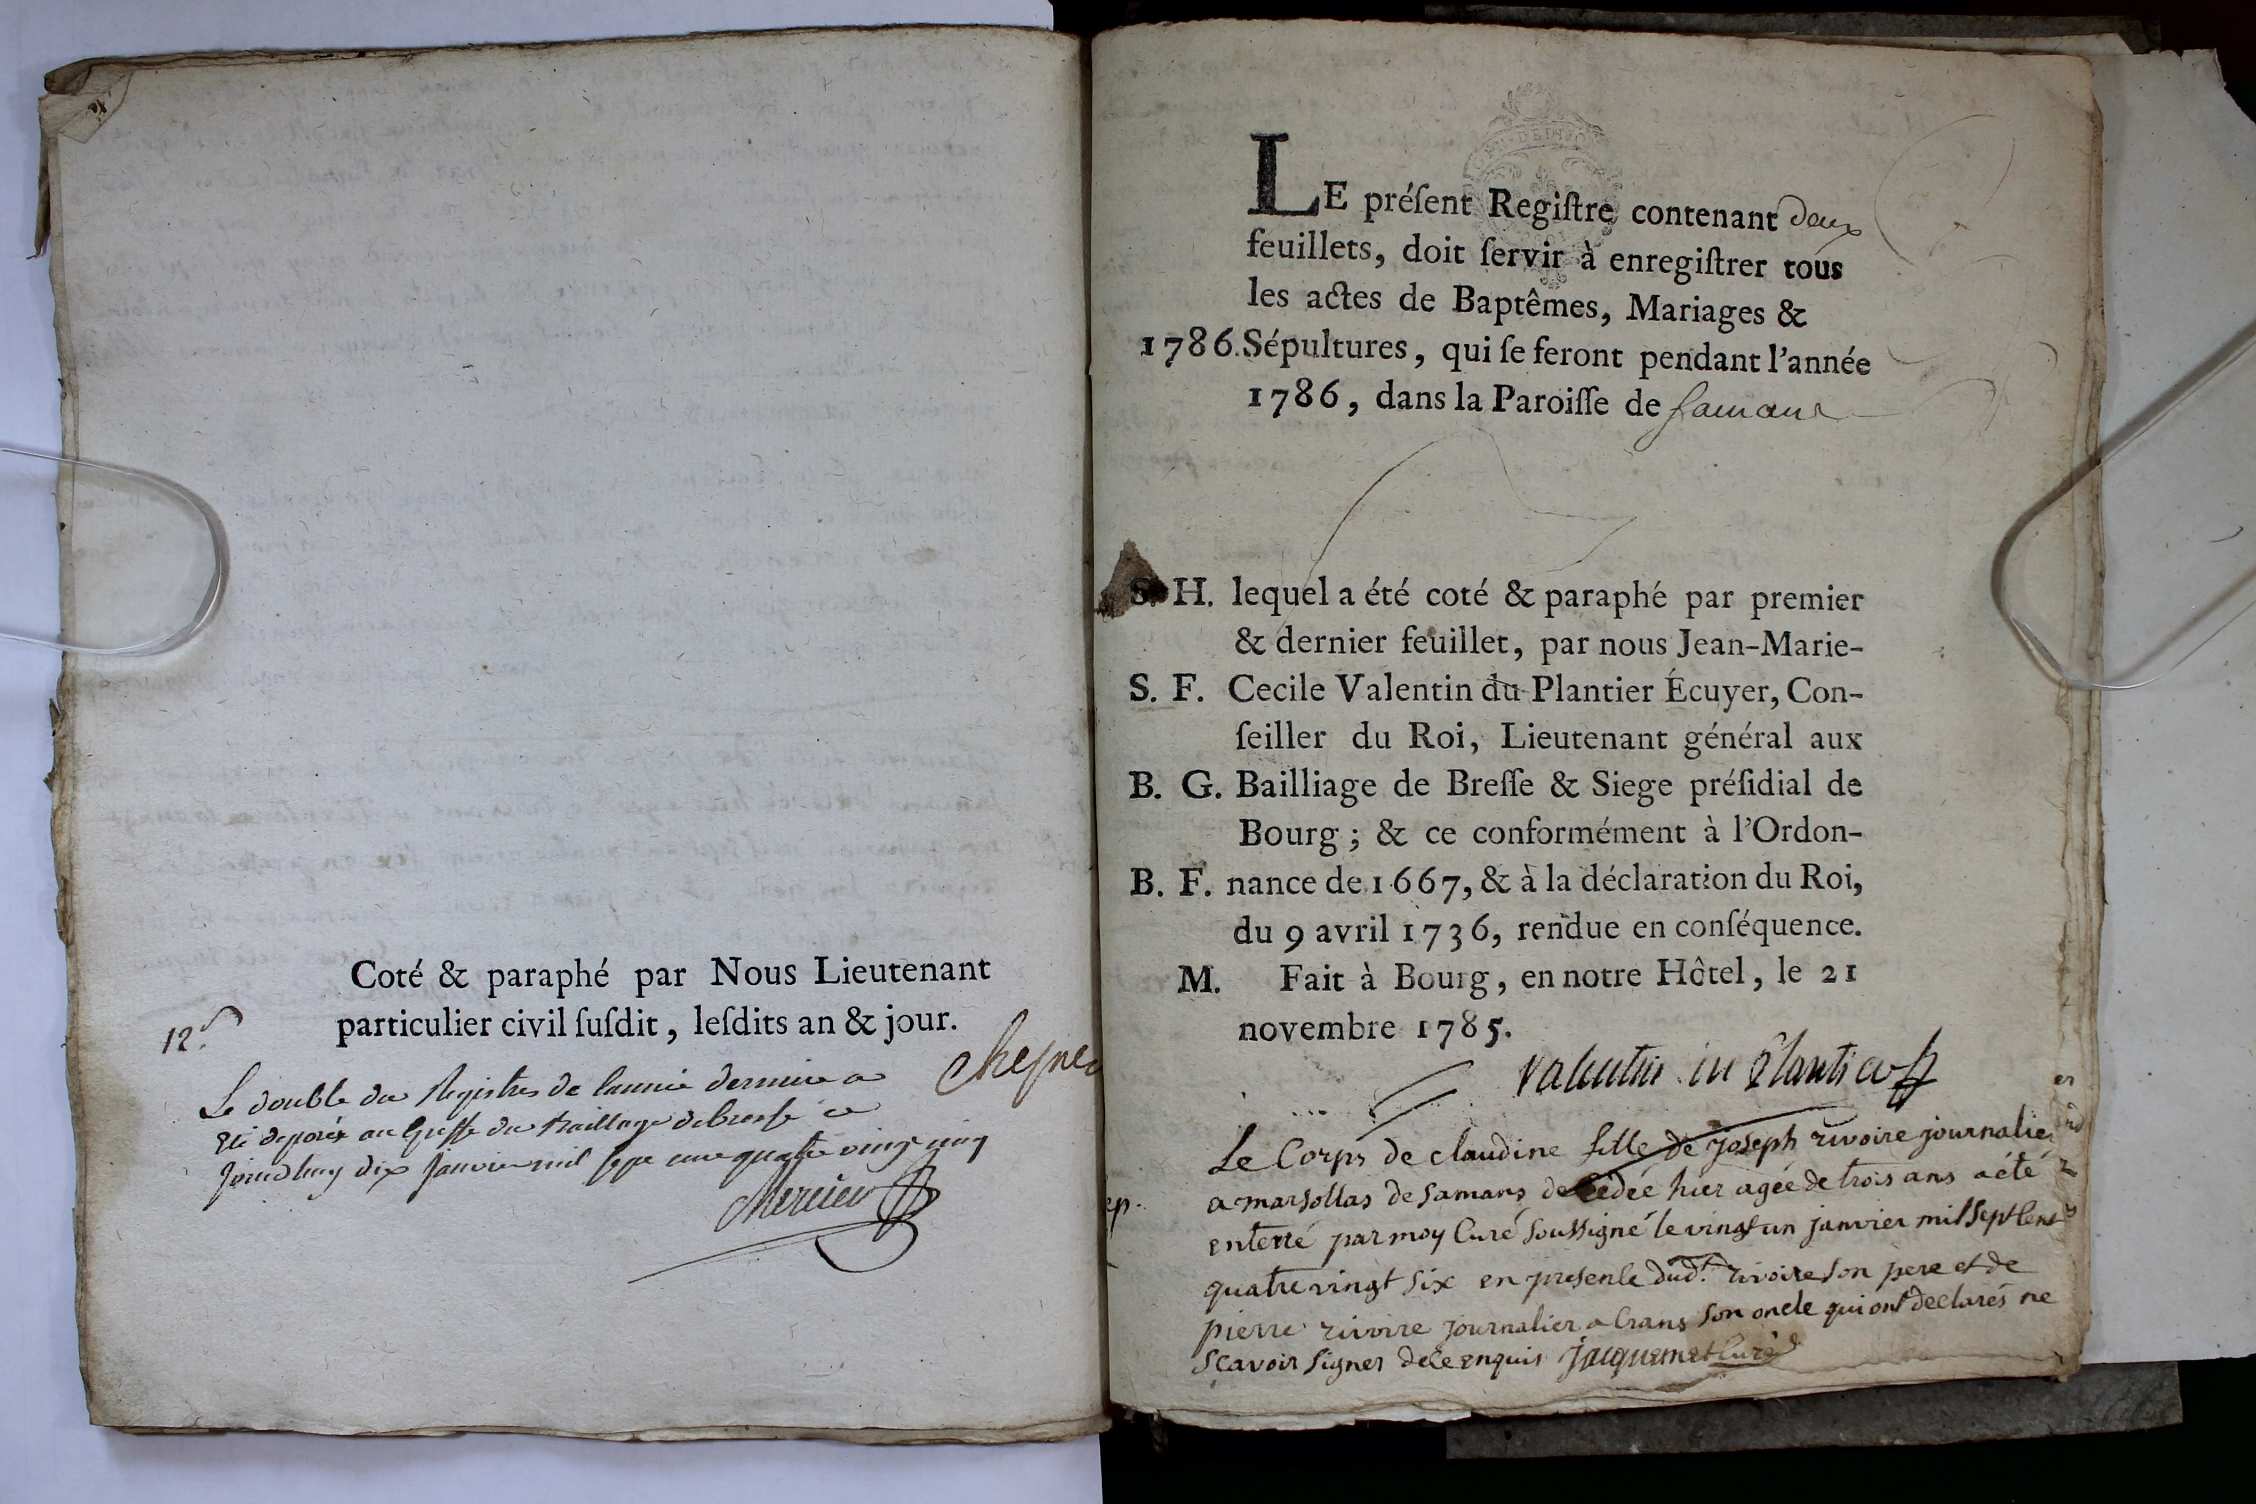 Coté & paraphé par Nous Lieutenant
particulier civil ſuſdit, leſdits an & jour.
12.ˢ
Le double du Registre de lannée derniere a
Eté deposée au Greffe du Bailliage de bresse ce
jourdhuy dix janvier mil sept cent quatre vingt cinq
Mercier
LE préſent Regiſtre contenant deux
feuillets, doit ſervir à enregiſtrer tous
les actes de Baptêmes, Mariages &
1786. Sépultures, qui ſe feront pendant l'année
1786, dans la Paroiſſe de Samans
S. H. lequel a été coté & paraphé par premier
& dernier feuillet, par nous Jean-Marie-
S. F. Cecile Valentin du Plantier Écuyer, Con-
ſeiller du Roi, Lieutenant général aux
B. G. Bailliage de Breſſe & Siege préſidial de
Bourg ; & ce conformément à l'Ordon-
B. F. nance de 1667, & à la déclaration du Roi,
du 9 avril 1736, rendue en conſéquence.
M. Fait à Bourg, en notre Hôtel, le 21
novembre 1785.
Valentin du Plantier
Le Corps de claudine fille de joseph rivoire journalier
a marsollas de samans decedée hier agée de trois ans a été
enterré par moy Curé soussigné le vingt un janvier mil sept cent
quatre vingt six en presence dud.t rivoire son pere et de
pierre rivoire journalier a Crans son oncle qui ont declarés ne
scavoir signer de ce enquis jacquemet Curé